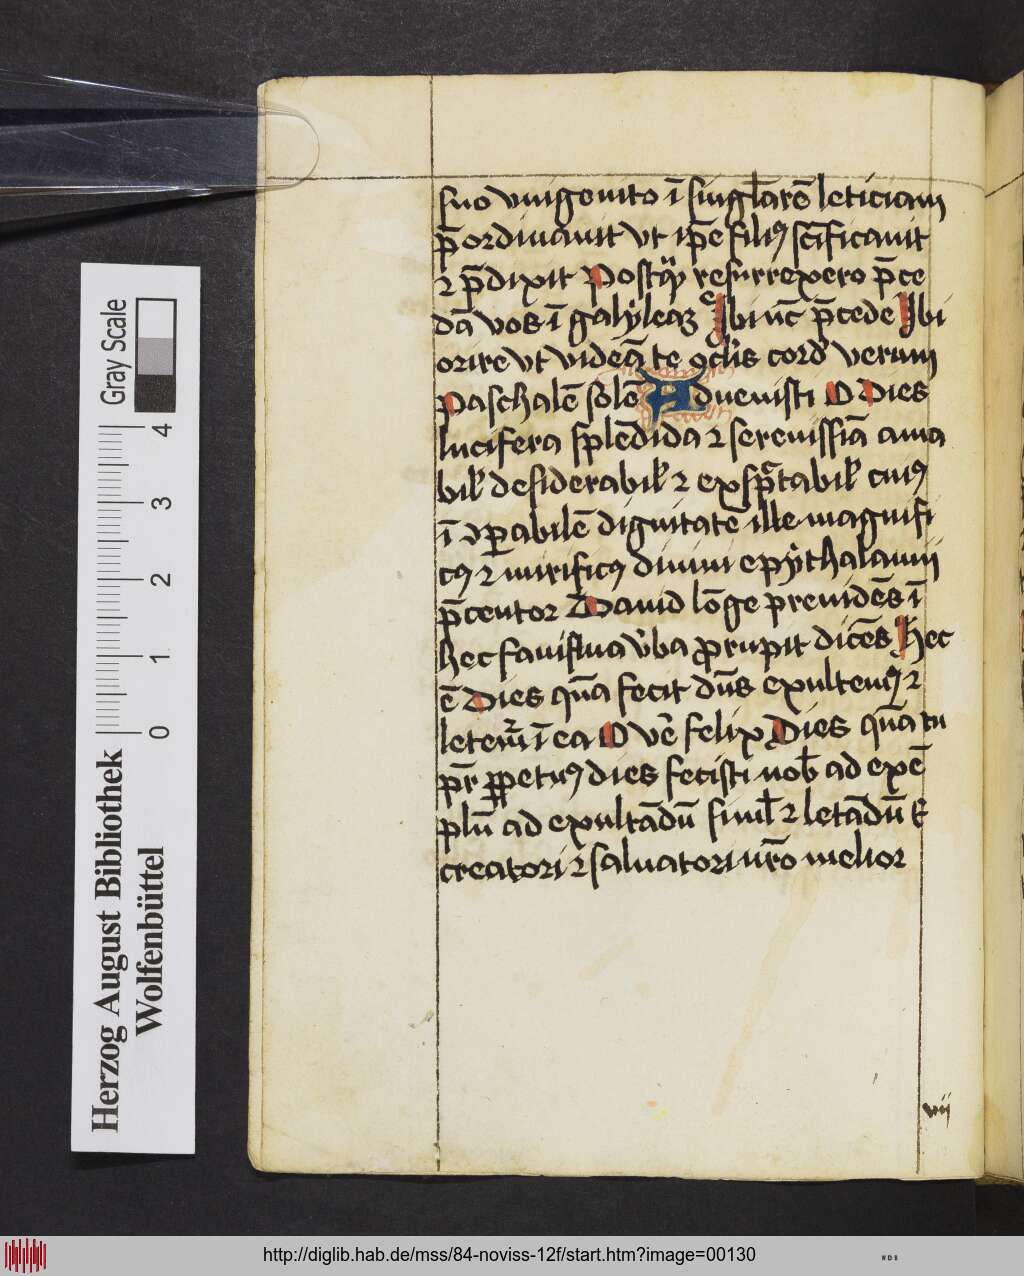 suo vnigenito ī singl̄arē leticiam
p̄ordinauit vt ip̄e filiꝰ sc̄ificauit
⁊ p̄dixit Postq̄ꝫ resurrexero p̄ce
dā vos ī galyleaꝫ Ibi nūc p̄cede Ibi
orire vt videā te oclīs cord̕ verum
Paschalē solē Aduenisti O Dies
lucifera splēdida ⁊ serenissīa ama
bil̕ desiderabil̕ ⁊ exspectabil̕ cuiꝰ
ī ꝯꝑabilē dignitatē ille magnifi
cꝰ ⁊ mirificꝰ diuini epythalamij
p̄centor Dauid lōge preuidēs ī
hec fauistiua v̄ba ꝓrupit dicēs Hec
ē Dies quā fecit dn̄s exultemꝰ ⁊
letem̄r ī ea O vē felix Dies quā tu
pr̄ ꝑpetuꝰ dies fecisti nob̄ ad exē
plū ad exultādū simul̄ ⁊ letādū
creatori ⁊ saluatori nr̄o melior
vij
Herzog August Bibliothek
Wolfenbüttel
Gray Scale
0 1 2 3 4
http://diglib.hab.de/mss/84-noviss-12f/start.htm?image=00130